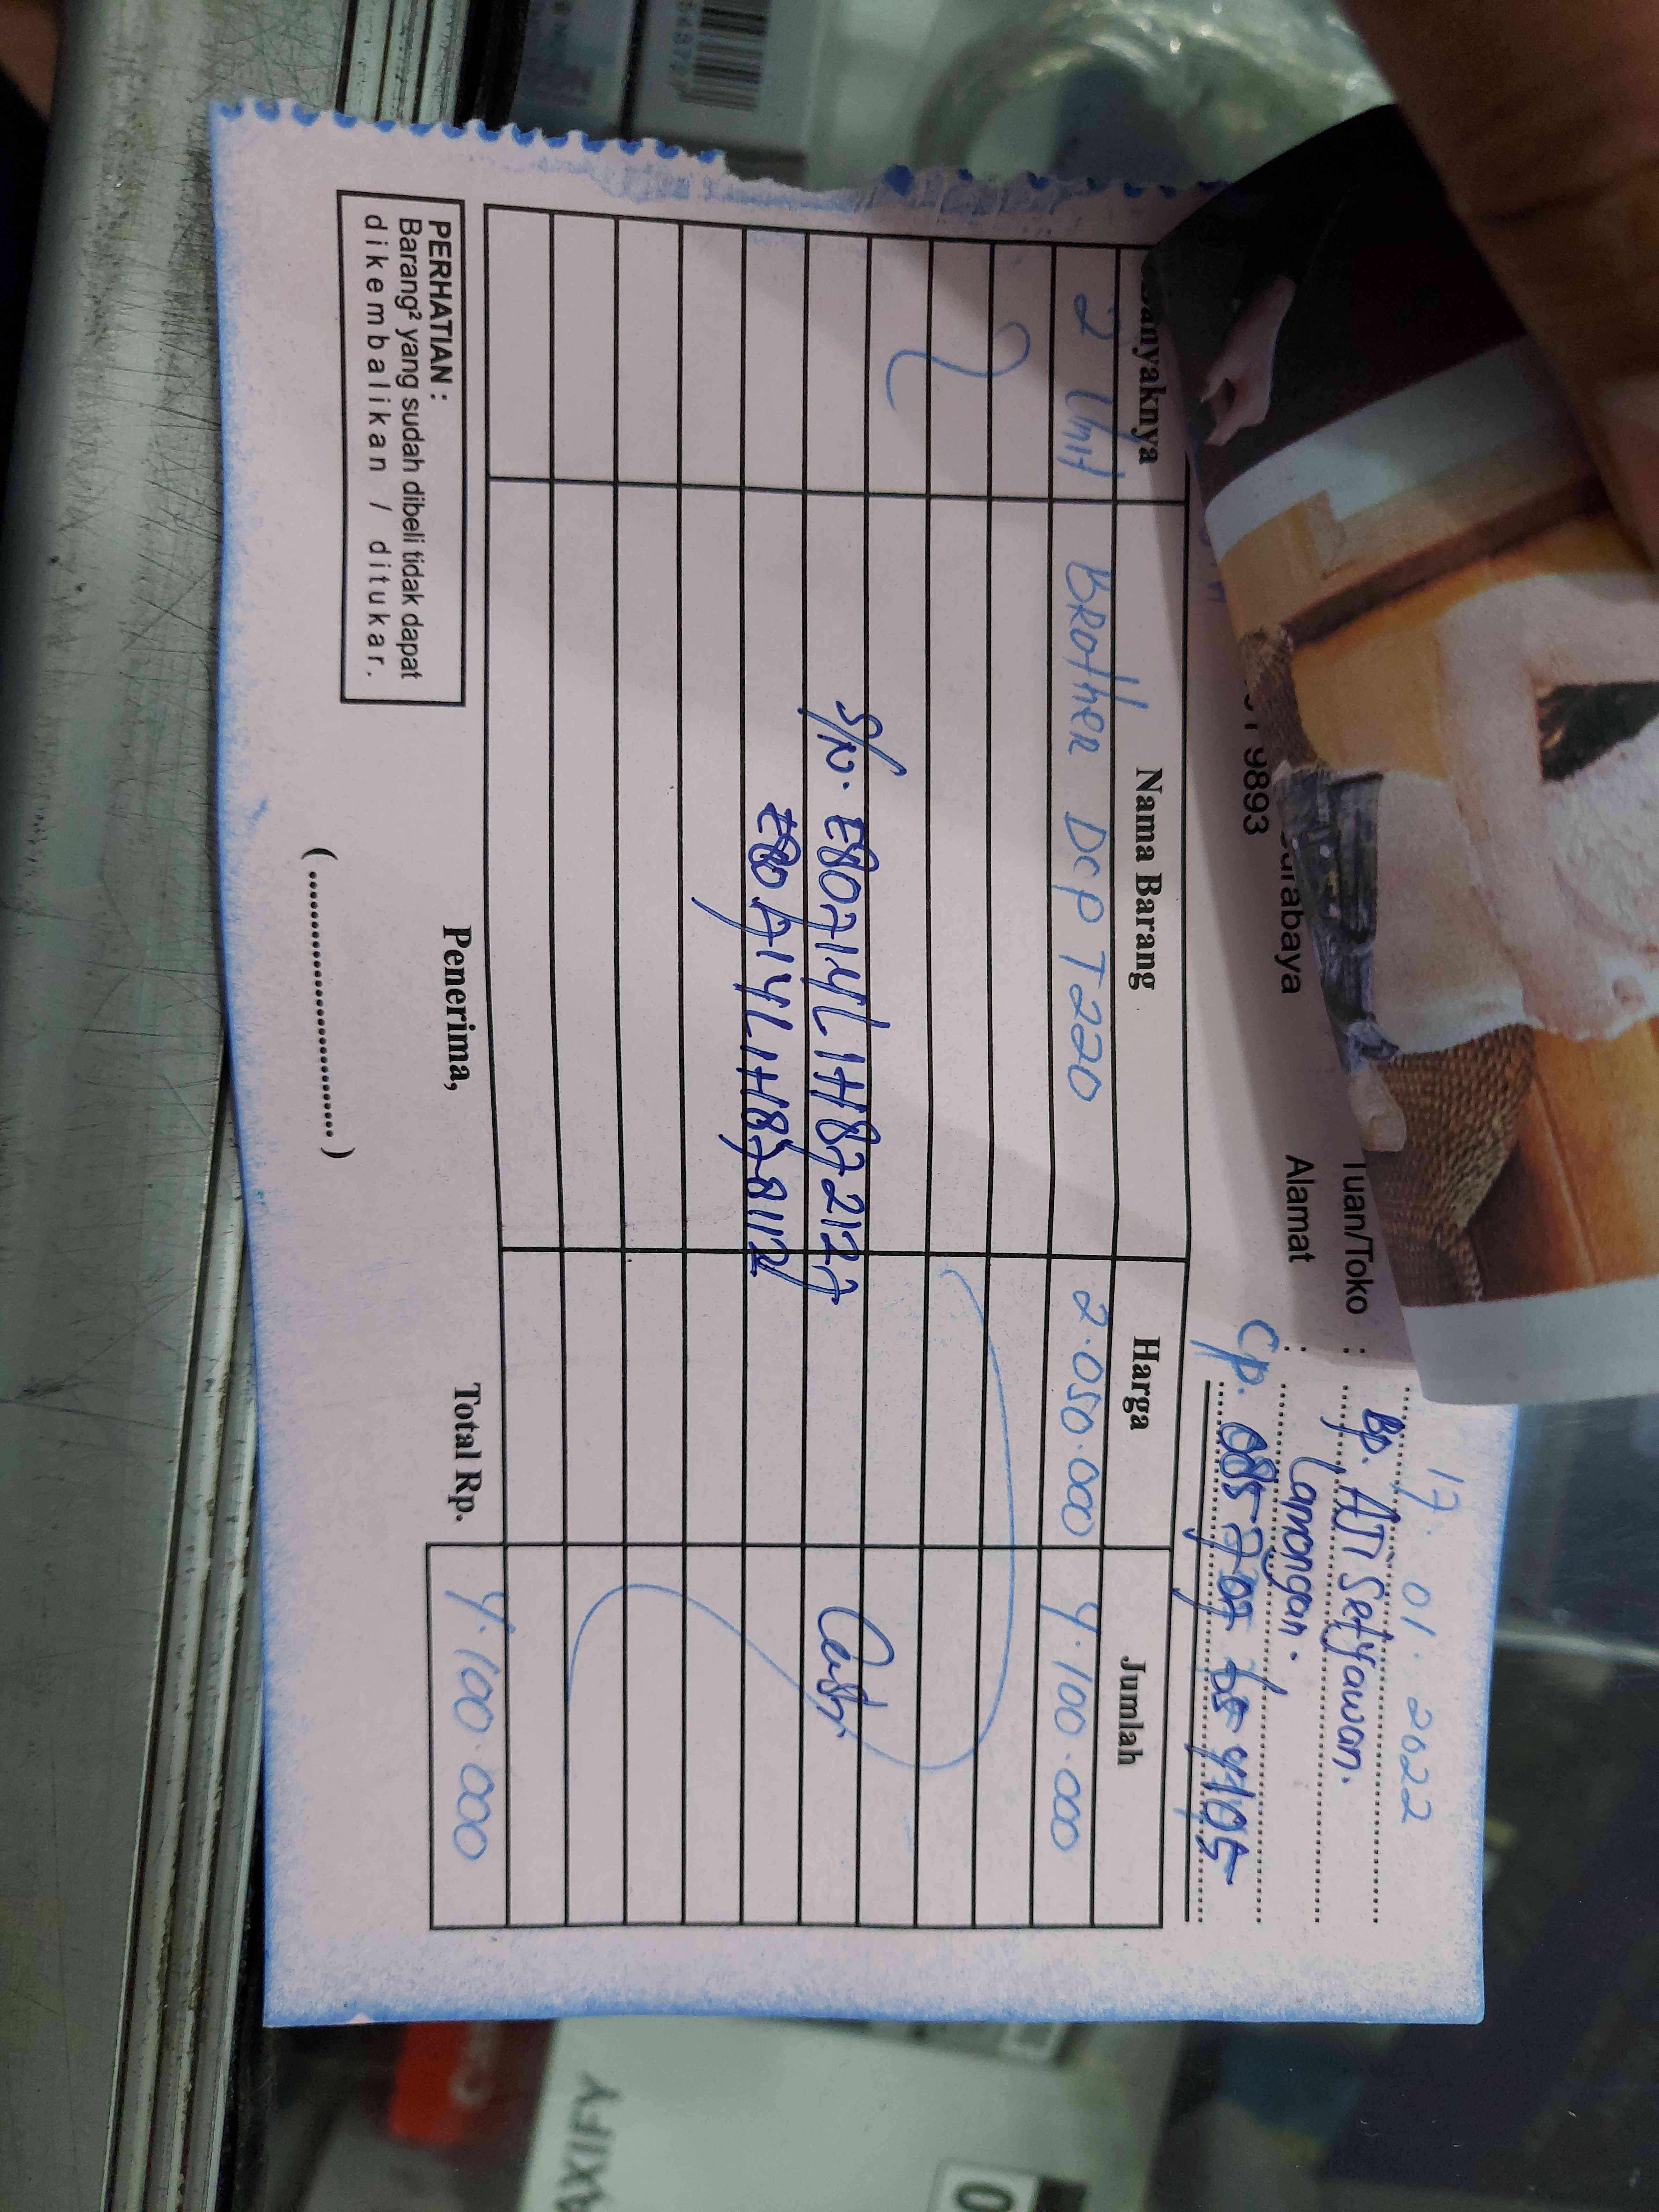 17. 01. 2022
Tuan/Toko : Bp. ATI Setyawan.
Surabaya
Alamat : Lamongan.
9893
Cp.
Banyaknya Nama Barang Harga Jumlah
2 Unit BRotheR DCP T220 2.050.000 4.100.000
S/N. E80714L1H872127 Cash
E80714L1H878112
Total Rp. 4.100.000
PERHATIAN :
Barang² yang sudah dibeli tidak dapat
dikembalikan / ditukar.
Penerima,
(........................)
AXIFY